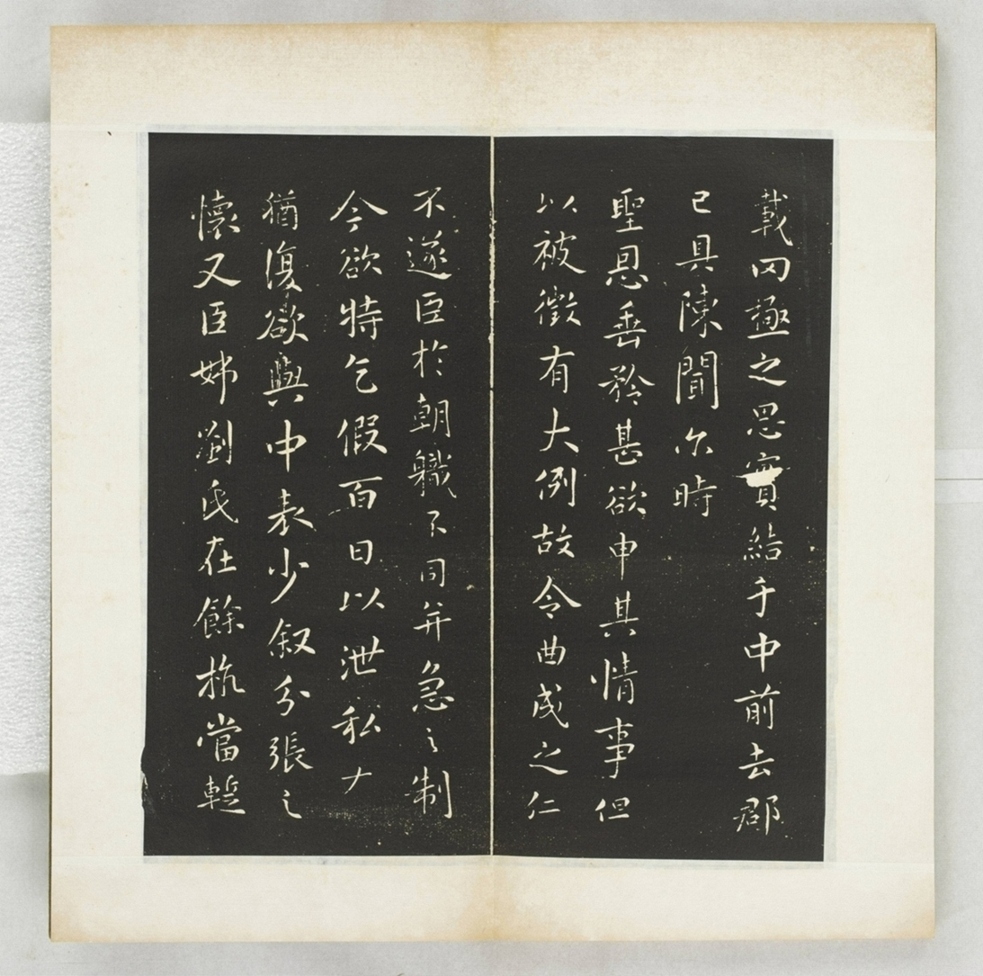 載罔極之恩實結于中前去郡
已具陳聞尓時
聖恩垂矜甚欲申其情事但
以被徵有大例故令曲成之仁
不遂臣於朝職不同并急之制
今欲特乞假百日以泄私
猶復欲與中表少叙分張之
懷又臣姊劉氏在餘杭當蹔